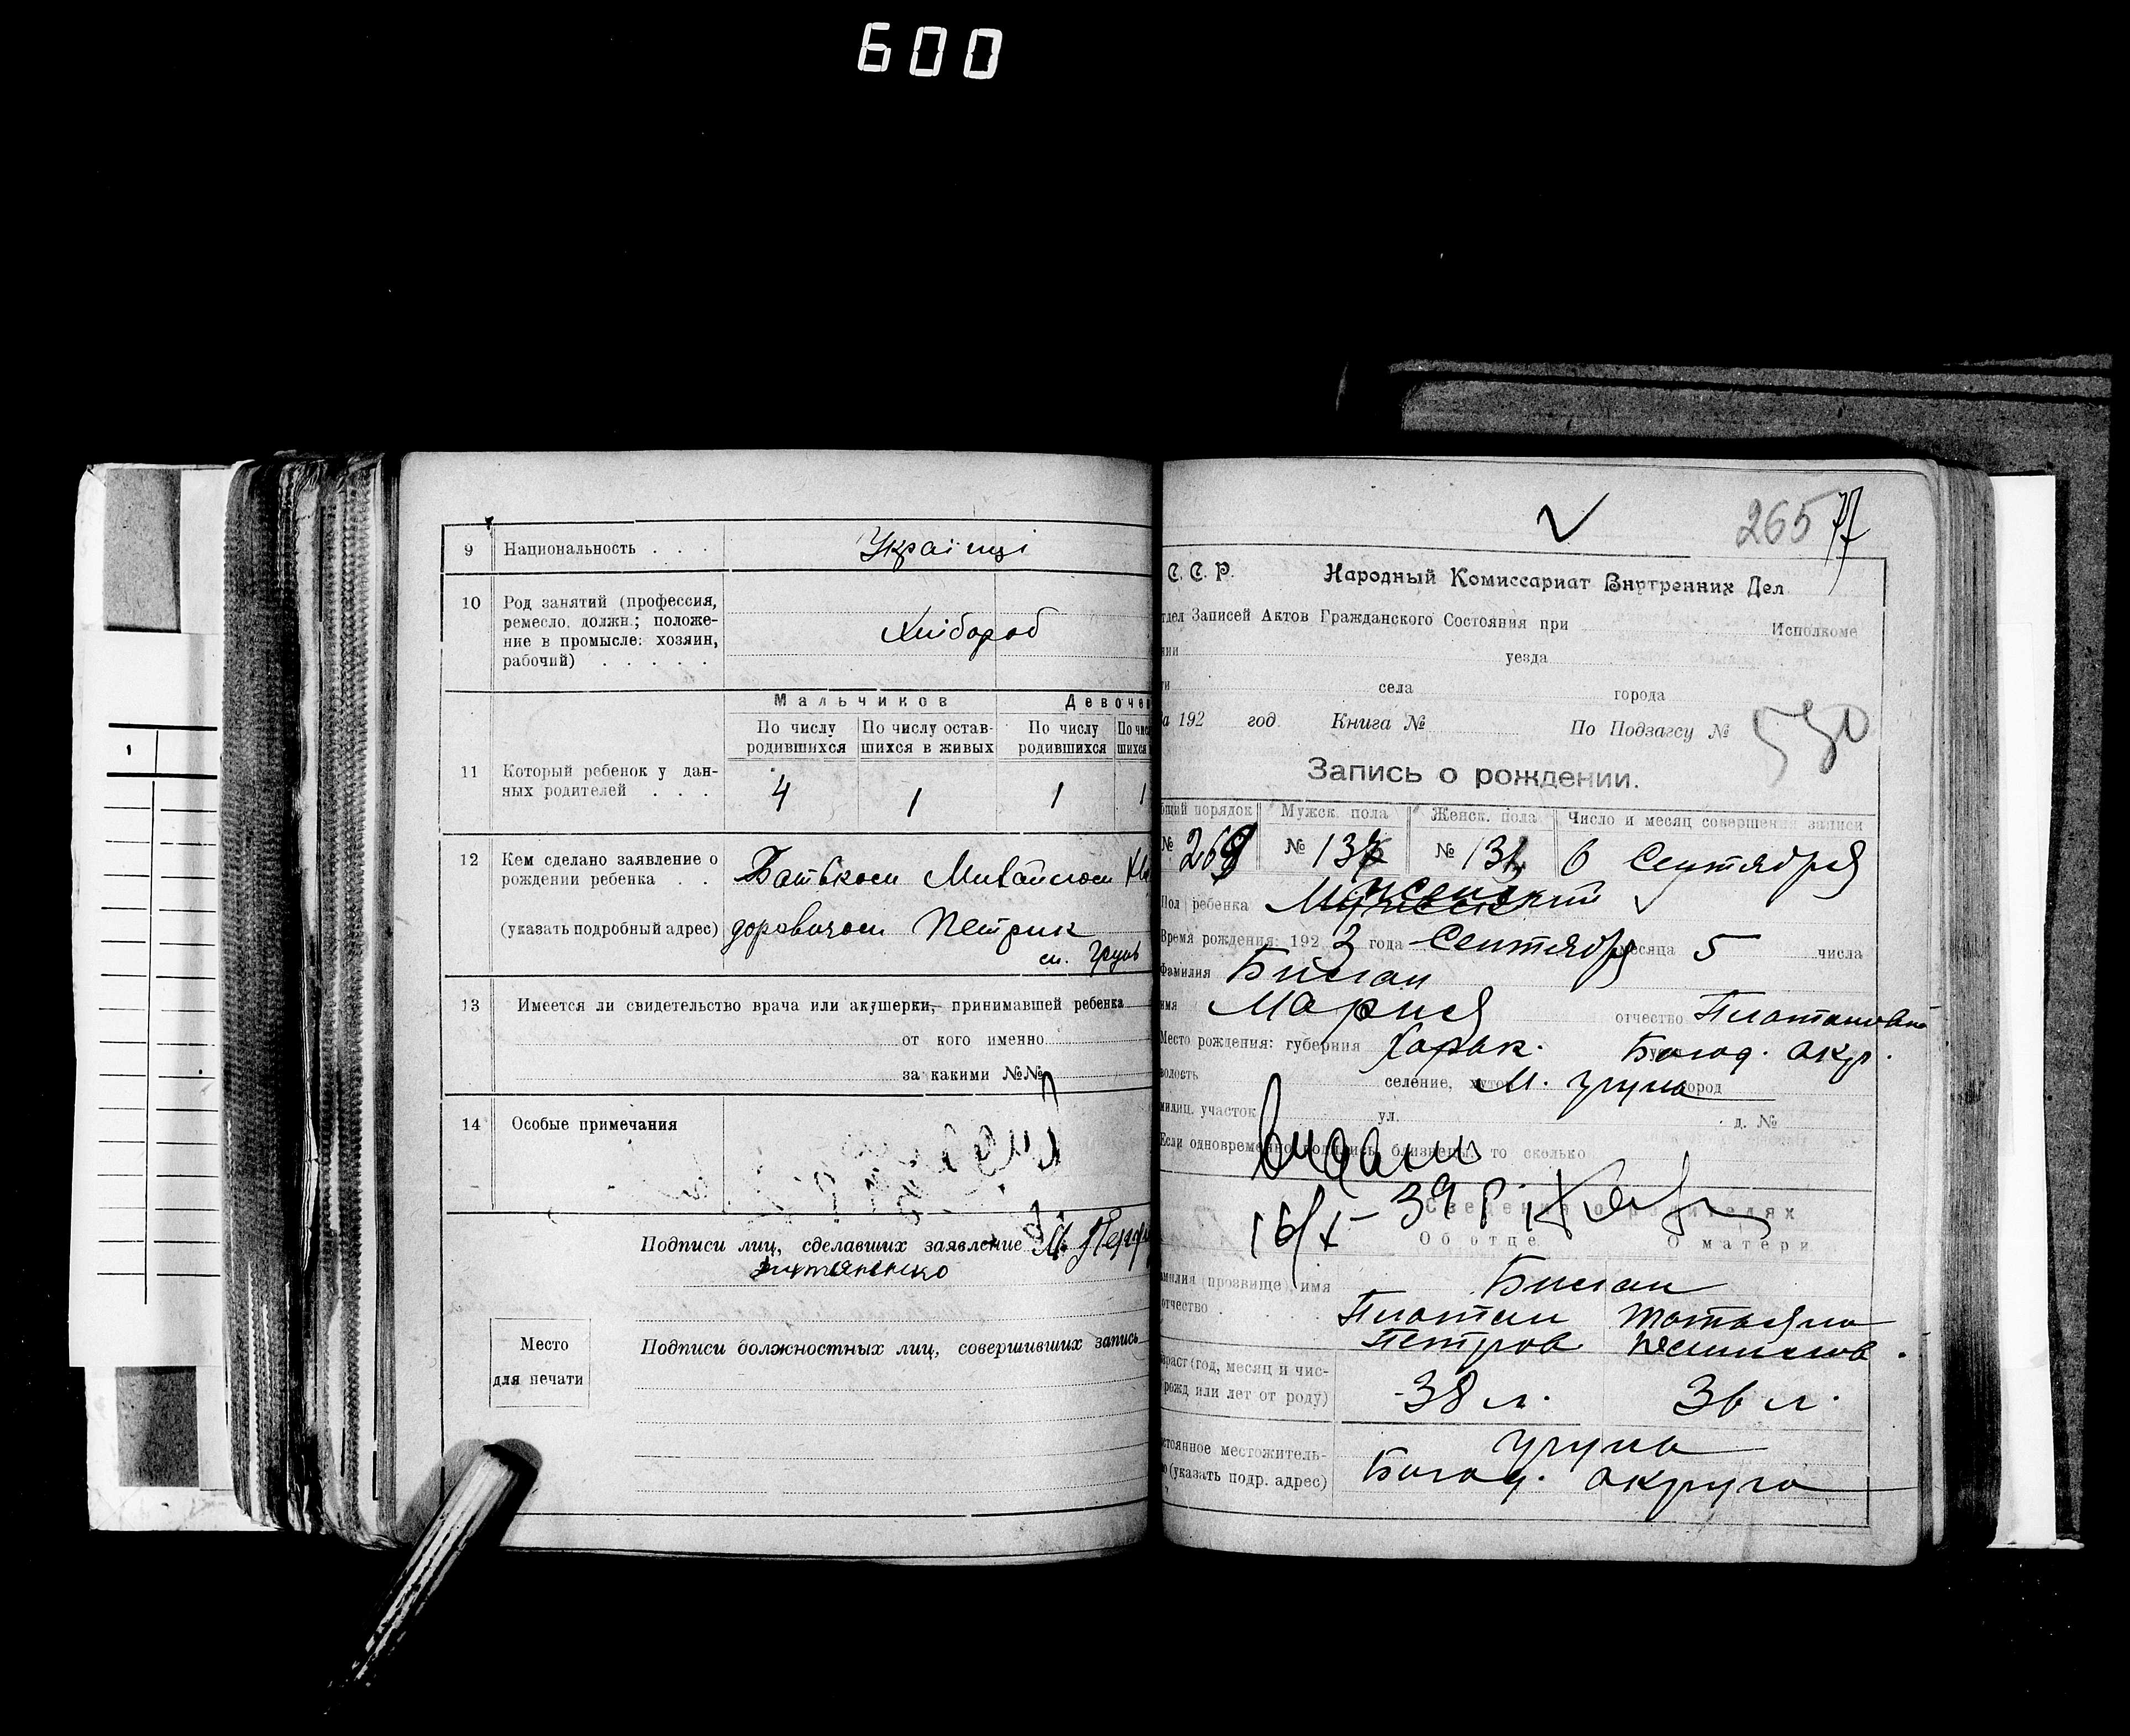 600
9 Национальность . . . Українці
10 Род занятий (профессия,
ремесло, должн.; положе-
ние в промысле: хозяин,
рабочий) . . . . .
Хлібороб
Мальчиков Девоче
По числу родившихся По числу остав-шихся в живых По числу родившихся
11 Который ребенок у дан-
ных родителей . . . 4 1 1 1
12 Кем сделано заявление о
рождении ребенка . . Батьком Михайлом
(указать подробный адрес) доровичом Петрик
см. Грунь
13 Имеется ли свидетельство врача или акушерки, принимавшей ребенка
от кого именно
за какими №№
14 Особые примечания
Подписи лиц, сделавших заявление М.
Подписи должностных лиц, совершивших запись
Место
для печати
265 77
С. С. Р. Народный Комиссариат Внутренних Дел
тдел Записей Актов Гражданского Состояния при Исполкоме
уезда
села города
а 192 год. Книга № По Подзагсу № 530
Запись о рождении.
бщий порядок Мужск. пола Женск. пола Число и месяц совершения записи
№ 268 № 137 № 131 6 Сентября
Пол ребенка Мужеский женский
Время рождения: 192 3 года Сентября месяца 5 числа
Фамилия Билан
имя Мария отчество Платоновна
Место рождения: губерния Харьк. Богод. окр.
волость селение, хутор М. Груна город
милиц. участок ул. д. №
Если одновременно родились близнецы, то сколько
Видан
16/X-39 р.
Сведения о родителях
Об отце О матери
амилия (прозвище), имя Билан
отчество . Платон Татьяна
Петров.
зраст (год, месяц и чис-
рожд. или лет от роду) 38 л. 36 л.
стоянное местожитель- Груна
о (указать подр. адрес) Богод. округа